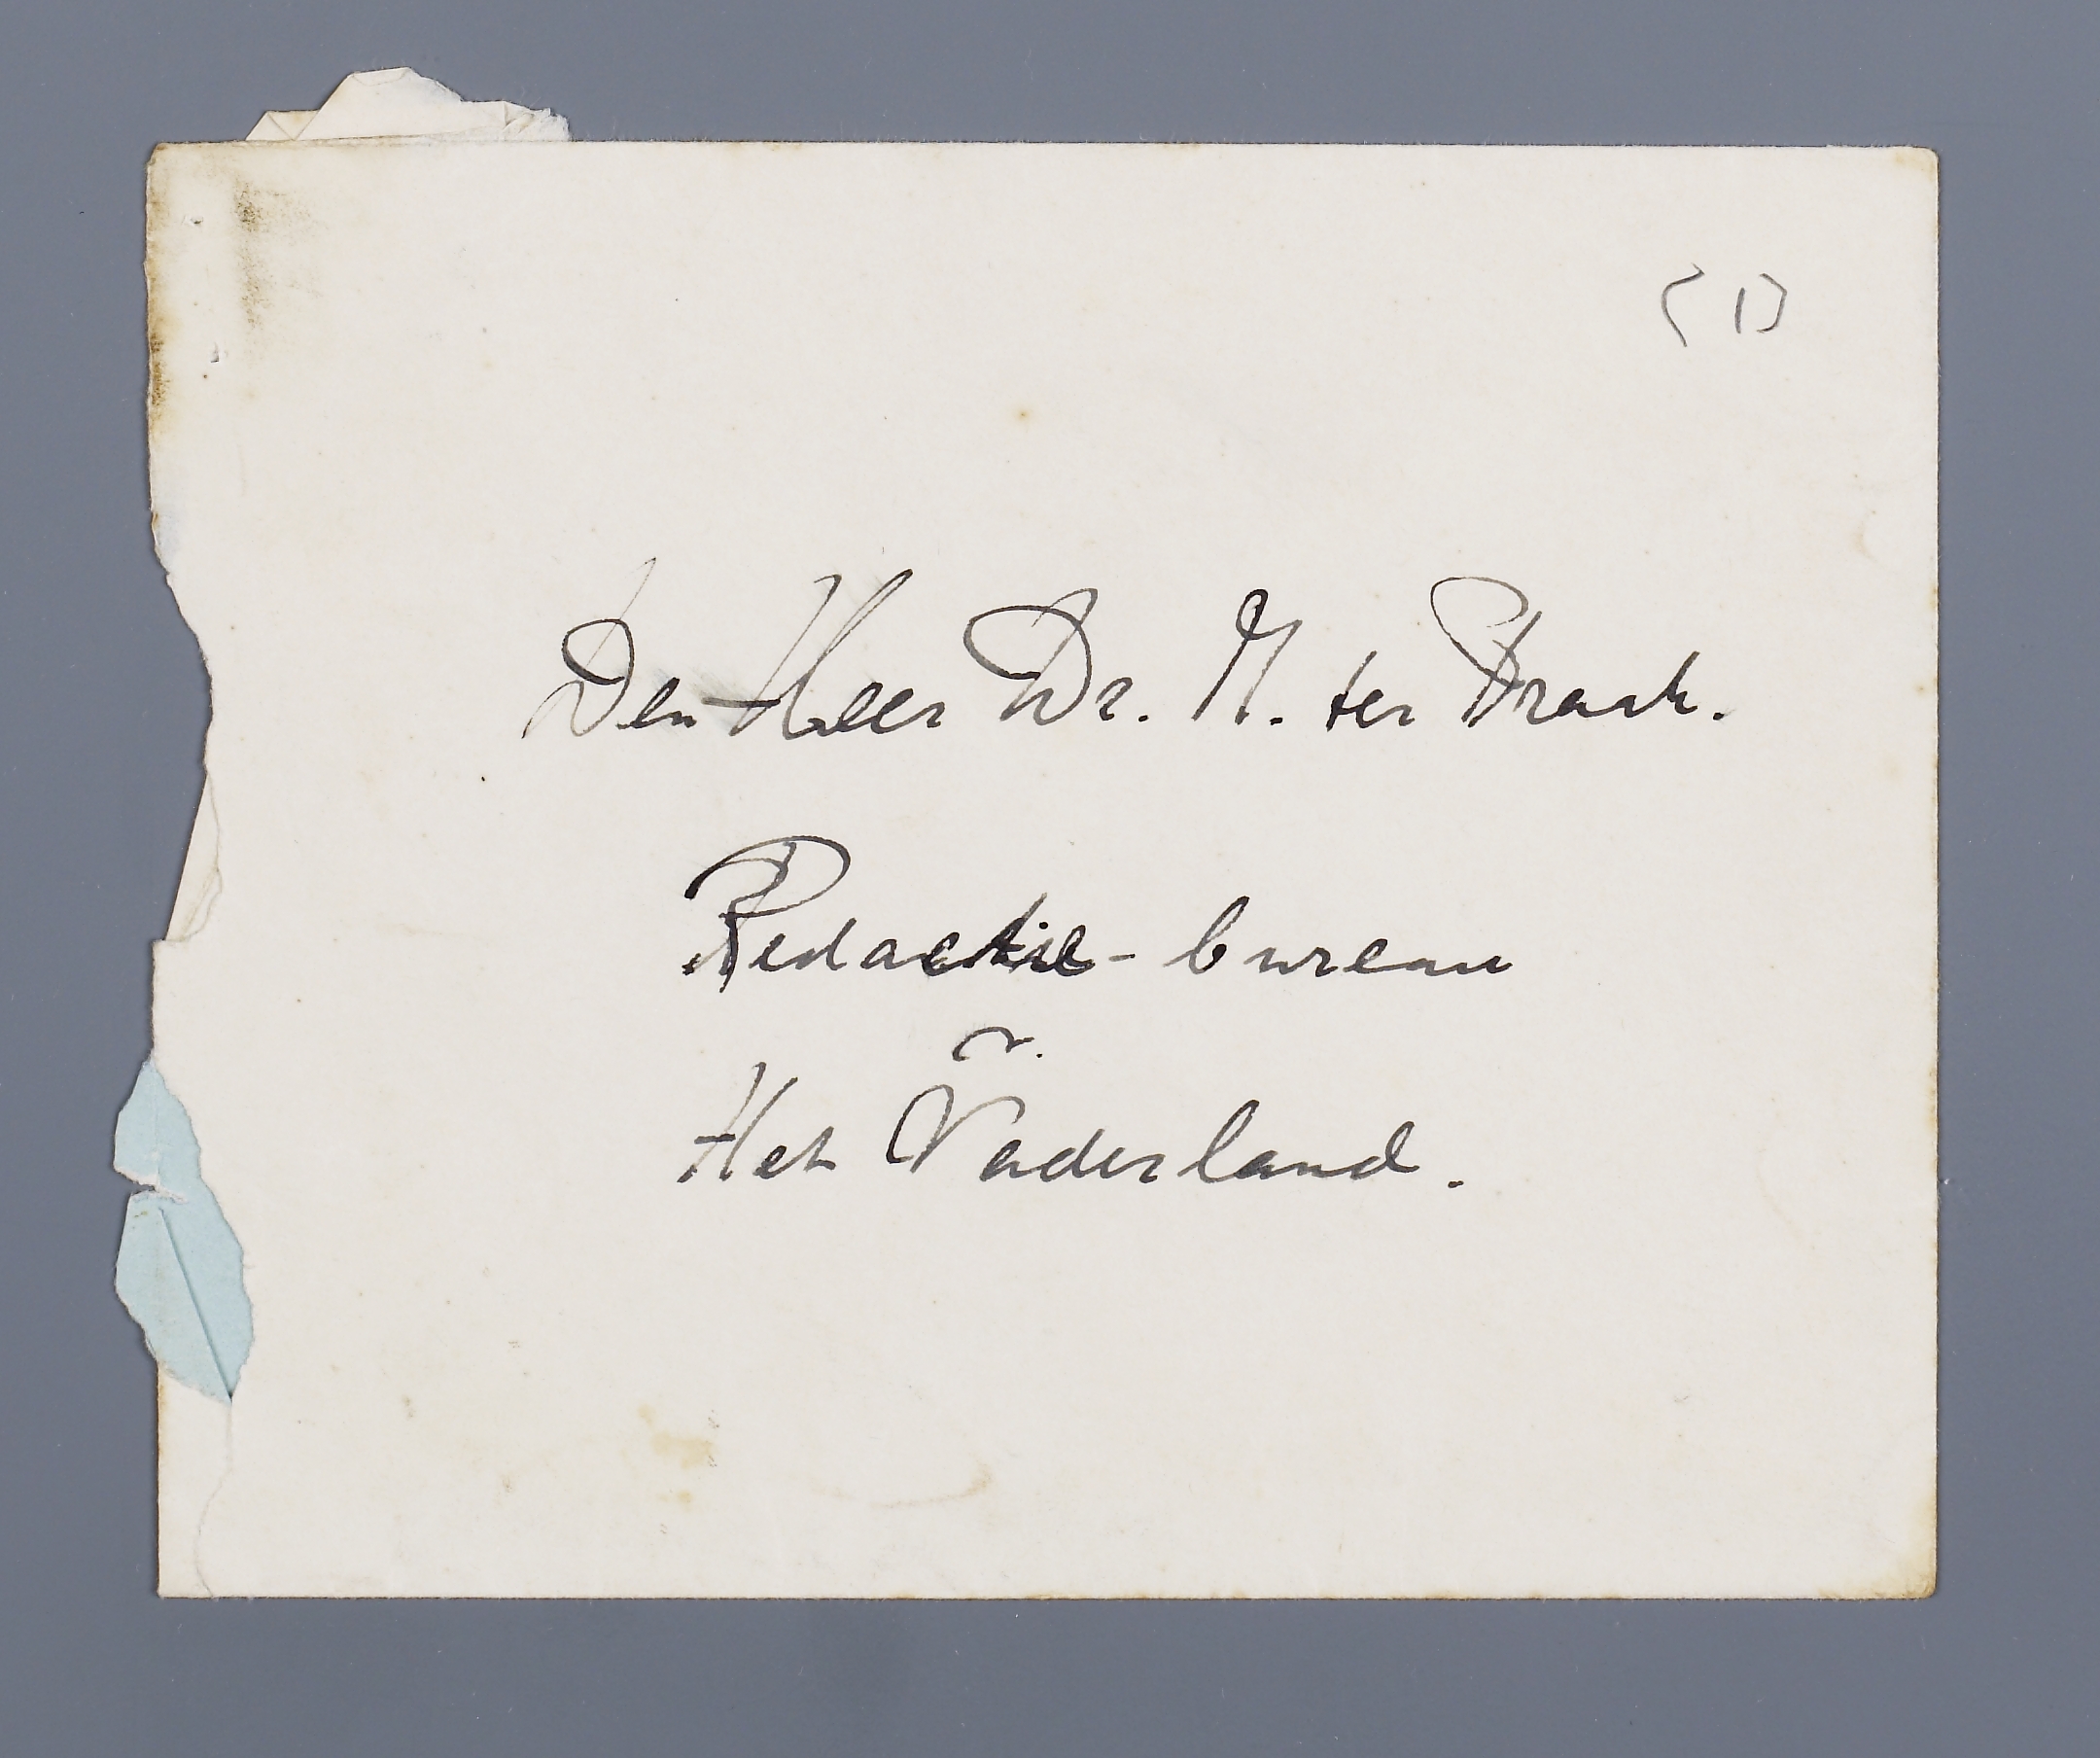 (1)
Den Heer Dr. M. ter Braak.
Redactie-bureau
v.
Het Vaderland.